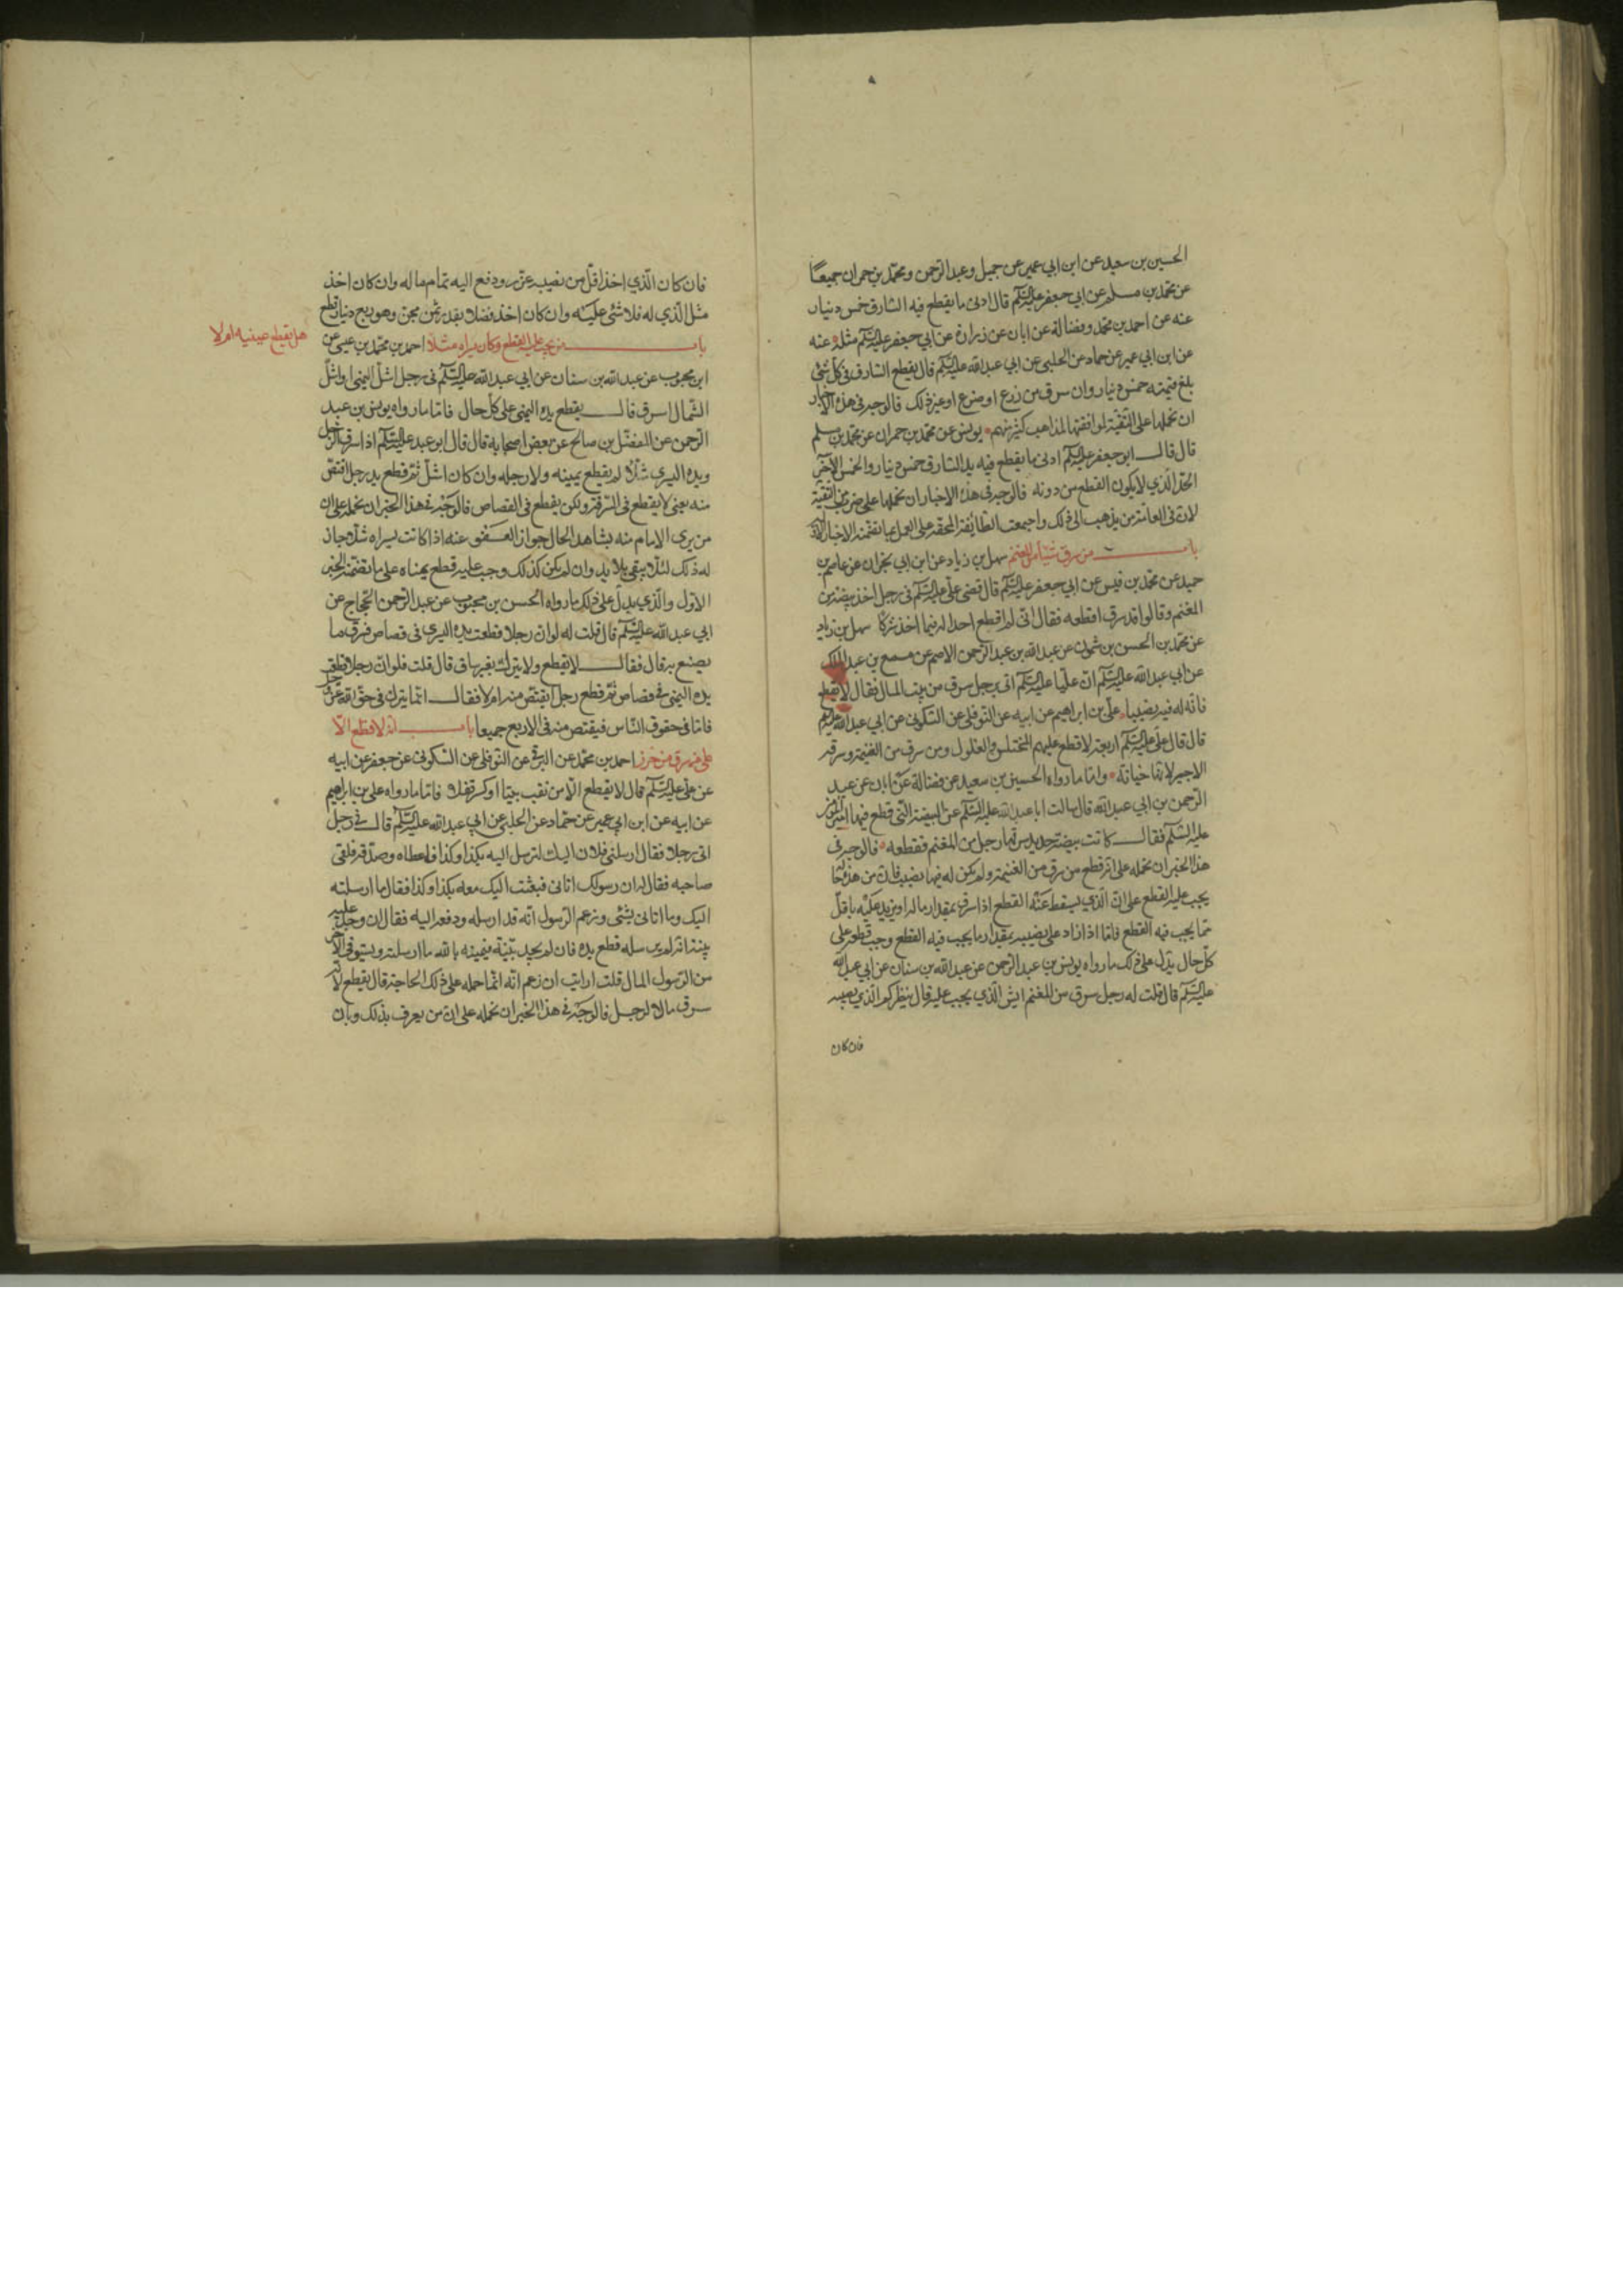 الحسين بن سعيد عن ابن ابي عمير عن جميل وعبد الرحمن ومحمد بن حمران جميعا
عن محمد بن مسلم عن ابي جعفر عليه السلم قال ادنى ما يقطع فيه السارق خمس دينار
عنه عن احمد بن محمد وفضالة عن ابان عن زرارة عن ابي جعفر عليه السلم مثله عنه
عن ابن ابي عمير عن حماد عن الحلبي عن ابي عبد الله عليه السلم قال يقطع السارق في كل شئ
بلغ قيمته خمس دينار وان سرق من زرع او ضرع او غير ذلك فالوجه في هذه الاخبار
ان نحملها على التقية لموافقتها لمذاهب كثير منهم يونس عن محمد بن حمران عن محمد بن مسلم
قال قال ابو جعفر عليه السلم ادنى ما يقطع فيه يد السارق خمس دينار والخمس الاخر
الحد الذي لا يكون القطع من دونه فالوجه في هذه الاخبار ان نحملها على ضرب من التقية
لان في العامة من يذهب الى ذلك واجمعت الطائفة المحقة على العمل بما تضمنه الاخبار
باب من سرق شيئا من المغنم سهل بن زياد عن ابن ابي نجران عن عاصم بن
حميد عن محمد بن قيس عن ابي جعفر عليه السلم قال قضى علي عليه السلم في رجل اخذ بيضة من
المغنم وقالوا قد سرق اقطعه فقال اني لم اقطع احدا له فيما اخذ شركا سهل بن زياد
عن محمد بن الحسن بن شمون عن عبد الله بن عبد الرحمن الاصم عن مسمع بن عبد الملك
عن ابي عبد الله عليه السلم ان عليا عليه السلم اتى برجل سرق من بيت المال فقال لا يقطع
فانه له فيه نصيبا علي بن ابراهيم عن ابيه عن النوفلي عن السكوني عن ابي عبد الله عليه السلم
قال قال علي عليه السلم اربعة لا قطع عليهم المختلس والغلول ومن سرق من الغنيمة وسرقة
الاجير لانها خيانة واما ما رواه الحسين بن سعيد عن فضالة عن ابان عن عبد
الرحمن بن ابي عبد الله قال سالت ابا عبد الله عليه السلم عن البيضة التي قطع فيها
عليه السلم فقال كانت بيضة حديد سرقها رجل من المغنم فقطعه فالوجه في
هذا الخبر ان نحمله على انه قطع من سرق من الغنيمة ولم يكن له فيها نصيب فان من
يجب عليه القطع على ان الذي يسقط عنه القطع اذا سرق بمقدار ماله او يزيد عليه باقل
مما يجب فيه القطع فاما اذا زاد على نصيبه بمقدار ما يجب فيه القطع وجب قطعه على
كل حال يدل على ذلك ما رواه يونس بن عبد الرحمن عن عبد الله بن سنان عن ابي عبد الله
عليه السلم قال قلت له رجل سرق من المغنم ايش الذي يجب عليه قال ينظر كم الذي نصيبه
فان كان
فان كان الذي اخذ اقل من نصيبه عزر ودفع اليه تمام ماله وان كان اخذ
مثل الذي له فلا شئ عليه وان كان اخذ فضلا بقدر ثمن مجن وهو ربع دينار قطع
باب من يجب عليه القطع وكان يسراه مشلا احمد بن محمد بن عيسى عن
هل يقطع يمينه ام لا
ابن محبوب عن عبد الله بن سنان عن ابي عبد الله عليه السلم في رجل اشل اليمنى او اشل
الشمال سرق قال يقطع يده اليمنى على كل حال فاما ما رواه يونس بن عبد
الرحمن عن المفضل بن صالح عن بعض اصحابه قال قال ابو عبد عليه السلم اذا سرق الرجل
ويده اليسرى شلاء لم يقطع يمينه ولا رجله وان كان اشل ثم قطع يد رجل اقتص
منه يعني لا يقطع في السرقة ولكن يقطع في القصاص فالوجه في هذا الخبر ان نحمله على ان
من يرى الامام منه بشاهد الحال جواز العفو عنه اذا كانت يسراه شلاء جاز
له ذلك لئلا يبقى بلا يد وان لم يكن كذلك وجب عليه قطع يمناه على ما تضمنه الخبر
الاول والذي يدل على ذلك ما رواه الحسن بن محبوب عن عبد الرحمن الحجاج عن
ابي عبد الله عليه السلم قال قلت له لو ان رجلا قطعت يده اليسرى في قصاص فسرق ما
يصنع به قال فقال لا يقطع ولا يترك بغير ساق قال قلت فلو ان رجلا قطعت
يده اليمنى في قصاص ثم قطع رجل ايقتص منه ام لا فقال انما يترك في حق الله عز وجل
فاما في حقوق الناس فيقتص منه في الاربع جميعا باب انه لا قطع الا
على من سرق من حرز احمد بن محمد عن البرقي عن النوفلي عن السكوني عن جعفر عن ابيه
عن علي عليه السلم قال لا يقطع الا من نقب بيتا او كسر قفلا فاما ما رواه علي بن ابراهيم
عن ابيه عن ابن ابي عمير عن حماد عن الحلبي عن ابي عبد الله عليه السلم قال في رجل
اتى رجلا فقال ارسلني فلان اليك لترسل اليه بكذا وكذا فاعطاه وصدقه فلقى
صاحبه فقال له ان رسولك اتاني فبعثت اليك معه بكذا وكذا فقال ما ارسلته
اليك وما اتاني بشئ وزعم الرسول انه قد ارسله ودفعه اليه فقال ان وجد عليه
بينة انه لم يرسله قطع يده فان لم يجد بينة فيمينه بالله ما ارسلته ويستوفي الاخر
من الرسول المال قلت ارايت ان زعم انه انما حمله على ذلك الحاجة قال يقطع لانه
سرق مال الرجل فالوجه في هذا الخبر ان نحمله على ان من يعرف بذلك وبان